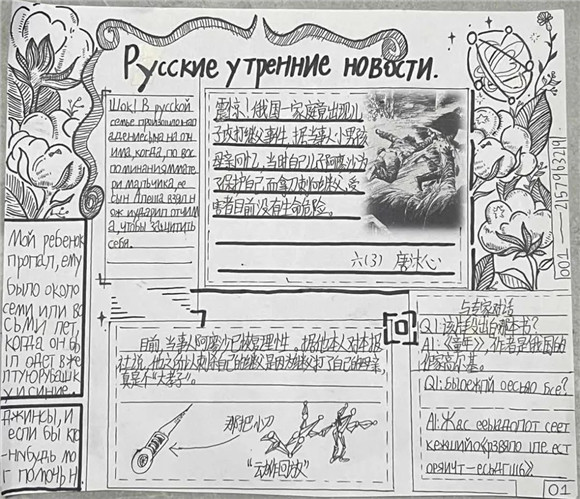 Русские утренние новости.
Шок! В русской
семье произошло нап
адение сына на отч
има, когда, по вос
поминаниям мате
ри мальчика, ее
сын Алеша взял н
ож и ударил отчим
а, чтобы защитить
себя.
震惊!俄国一家庭竟出现儿
子攻打继父事件,据当事人小男孩
母亲回忆,当时自己儿子阿廖沙为
了保护自己,而拿刀刺向继父,受
害者目前没有生命危险。
六(3) 唐沐心
001—2157963219
Мой ребенок
пропал, ему
было около
семи или во
сьми лет,
когда он бы
л одет в же
лтую рубашк
у и синие
джинсы, и
если бы кто
-нибудь мо
г помочь н
目前,当事人阿廖沙已恢复理性,据他本人对本报
社说,他之所以刺伤自己的继父是因为继父打了自己的母亲,
真是个“大孝子”。
那把小刀
“动作回放”
与专家对话
Q1:该片段出自哪本书?
A1:《童年》,作者是俄国的
作家高尔基。
01